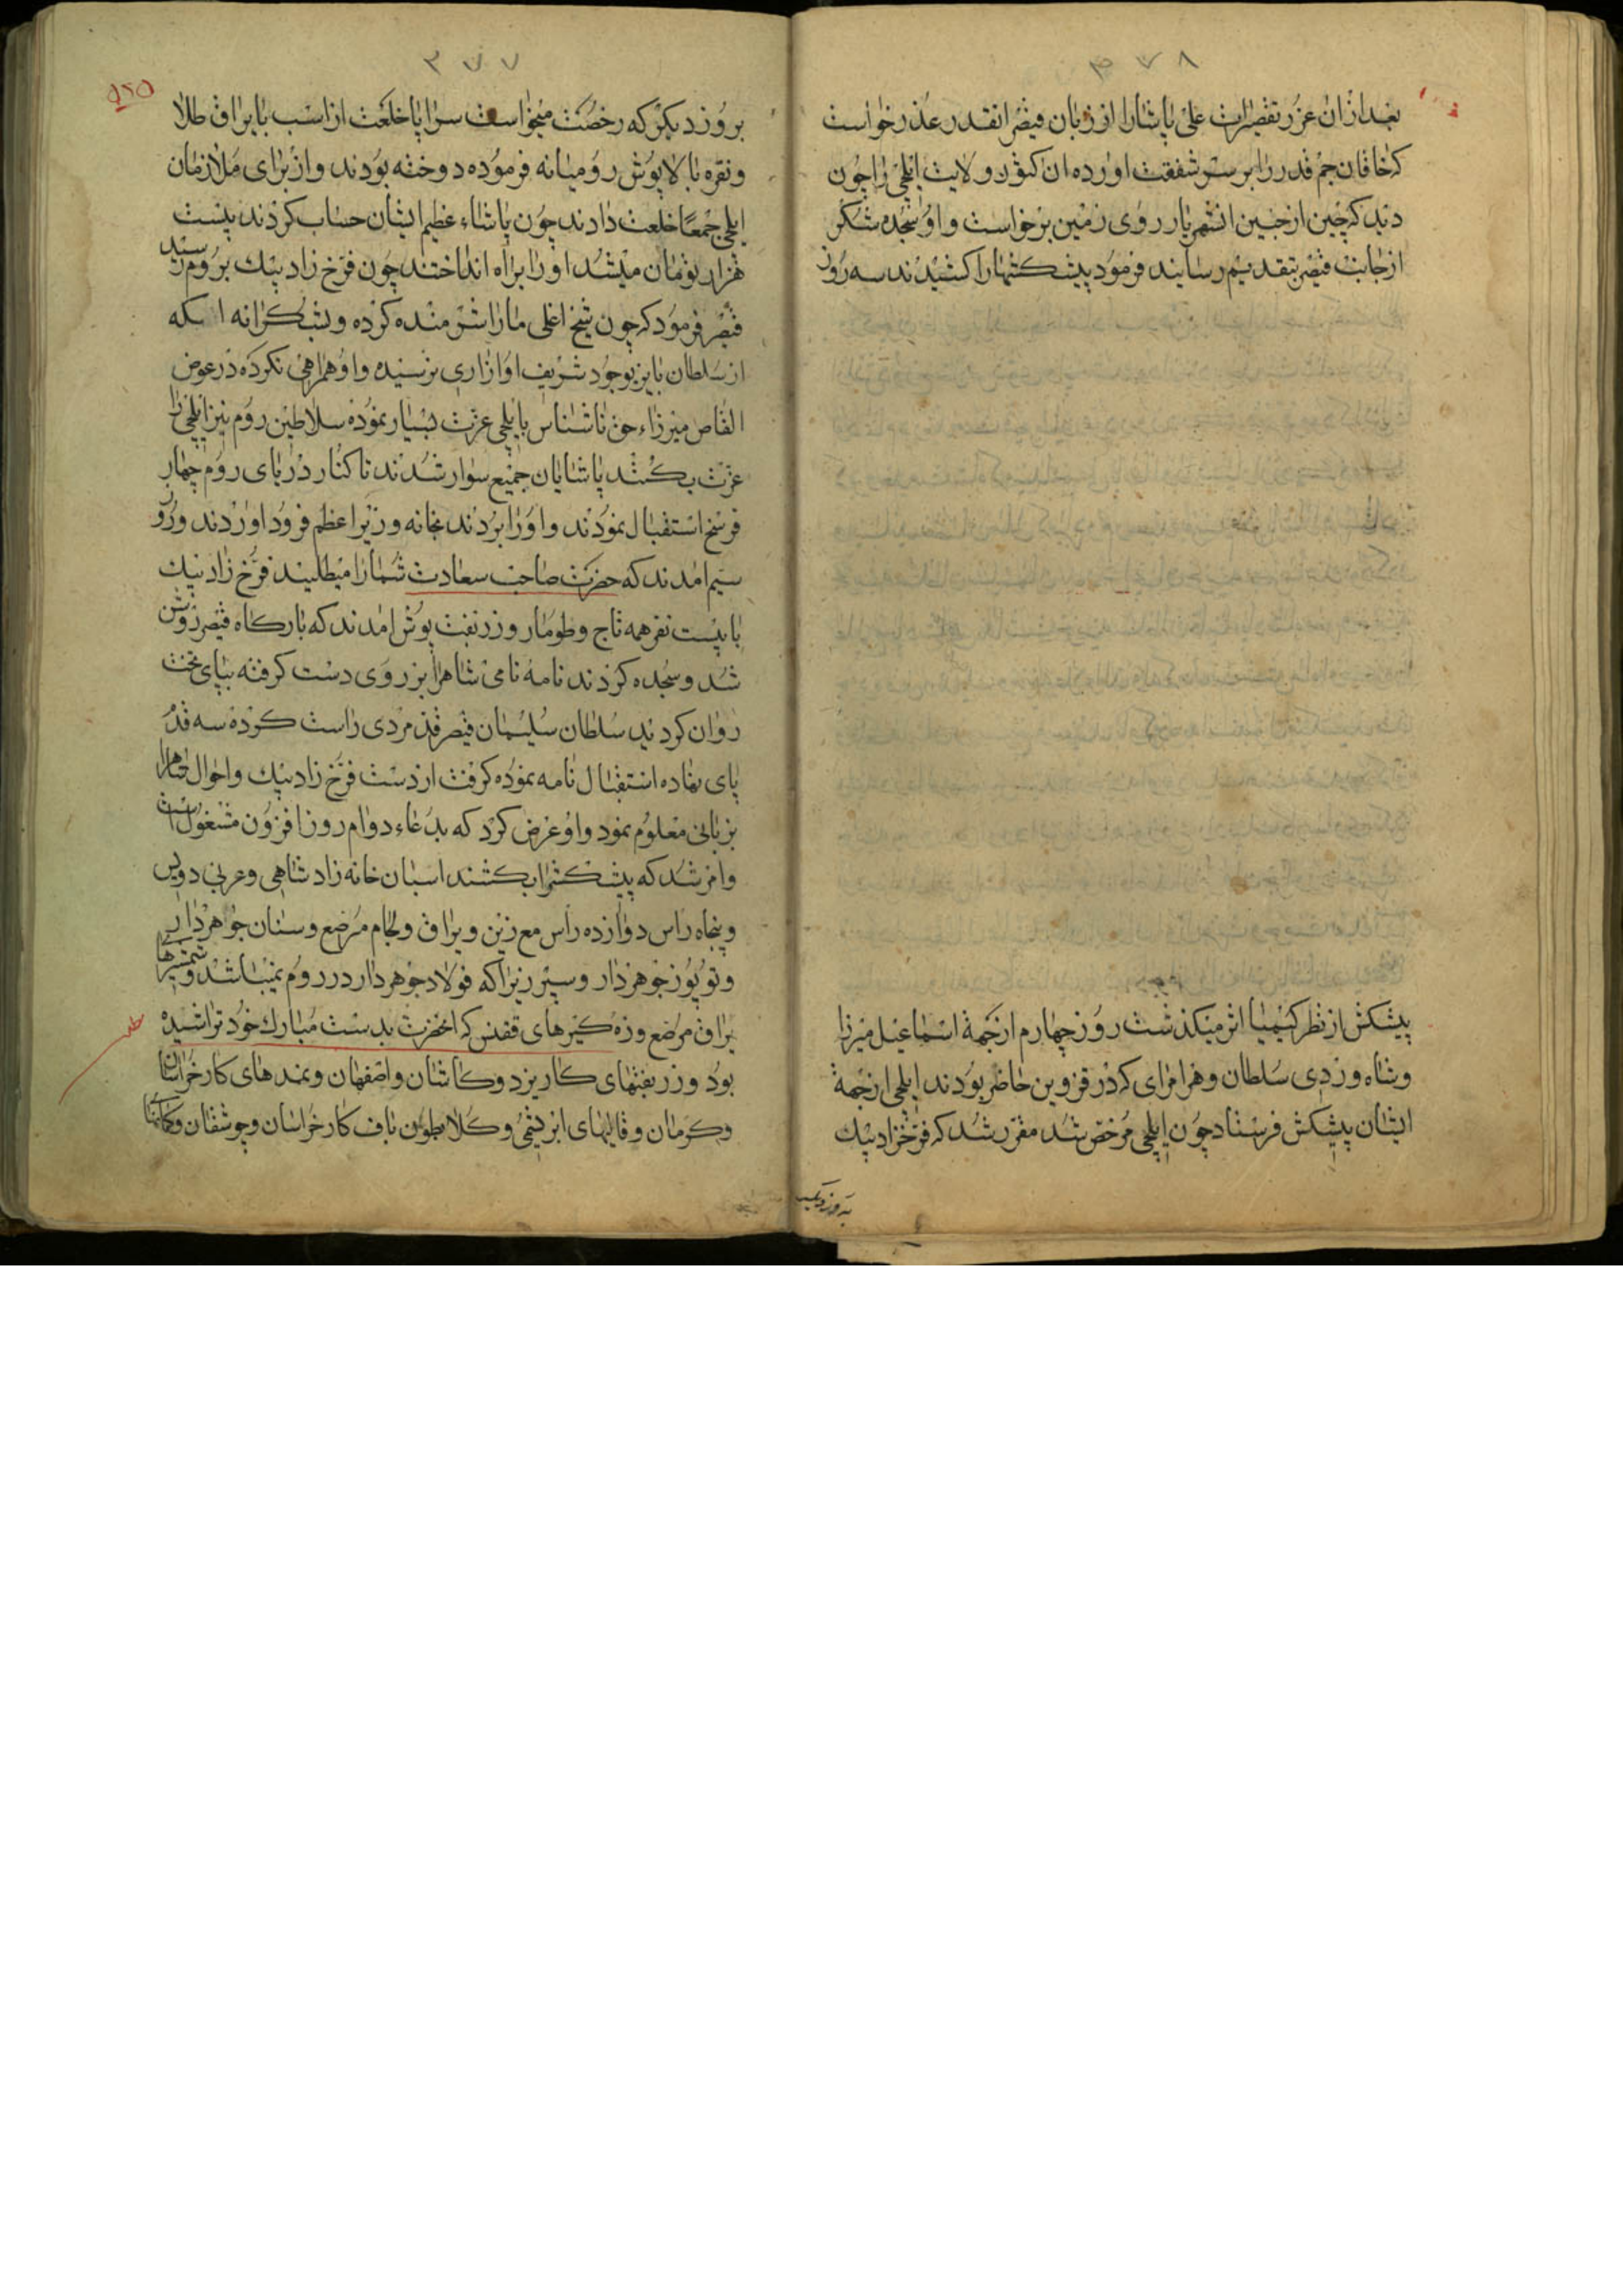 ۳۷۸
بعد ازان عزر تقصیرات علی پاشا را از زبان قیصر انقدر عذر خواست
که خاقان جم قدر را بر سر شفقت اورده ان کشور و ولایت ایلچی را چون
دید که چین از جبین انشهریار روی زمین برخواست و او سجده شکر
از جانب قیصر بتقدیم رسانید فرمود پیشکشها را کشیدند سه روز
پیشکش از نظر کیمیا اثر میکذشت روز چهارم از جمهة اسماعیل میرزا
وشاه وردی سلطان وهر امرای که در قزوین حاظر بودند ایلچی ازجهة
ایشان پیشکش فرستاد چون ایلچی مرخص شد مقرر شد که فرخزاد بیک
بروز دیکر
۳۷۷
بروز دیکر که رخصت میخواست سراپا خلعت از اسب با یراق طلا
ونقره با بالاپوش رومیانه فرموده دوخته بودند واز برای ملازمان
ایلچی جمعا خلعت دادند چون پاشاء عظیم الشان حساب کردند بیست
هزار تومان میشد او را براه انداختند چون فرخ زاد بیک بروم رسید
قیصر فرمود که چون شیخ اغلی ما را شرمنده کرده وبشکرانه
از سلطان بایزید بوجود شریف او ازاری نرسیده واو همراهی نکرده در عوض
القاص میرزاء حق ناشناس با ایلچی عزت بسیار نموده سلاطین روم نیز ایلچی را
عزت بکنند پاشایان جمیع سوار شدند تا کنار دریای روم چهار
فرسخ استقبال نمودند واورا بردند بخانه وزیر اعظم فرود اوردند وروز
سیم امدند که حضرت صاحب سعادت شمارا میطلبند فرخ زاد بیک
با بیست نفر همه تاج وطومار وزربفت پوش امدند که بارکاه قیصر روشن
شد وسجده کردند نامه نامی شاهرا بر روی دست کرفته بپای تخت
روان کردند سلطان سلیمان قیصر قد مردی راست کرده سه قدم
پای نهاده استقبال نامه نموده کرفت از دست فرخ زاد بیک واحوال شاهرا
بزبانی معلوم نمود واو عرض کرد که بدعاء دوام روز افزون مشغولست
وامر شد که پیشکشرا بکشند اسبان خانه زاد شاهی وعربی دویس
وپنجاه راس دوازده راس مع زین ویراق ولجام مرصع وسنان جواهردار
وتوپوز جوهردار وسپر زیرا که فولاد جوهردار در روم نمیباشد وشمشیرها
یراق مرصع وزه کیرهای قفنس که اخضرت بدست مبارک خود تراشیده
بود وزربفتهای کار یزد وکاشان واصفهان ونمدهای کار خراسان
وکرمان وقالیهای ابریشمی وکلابطون باف کار خراسان وجوشقان